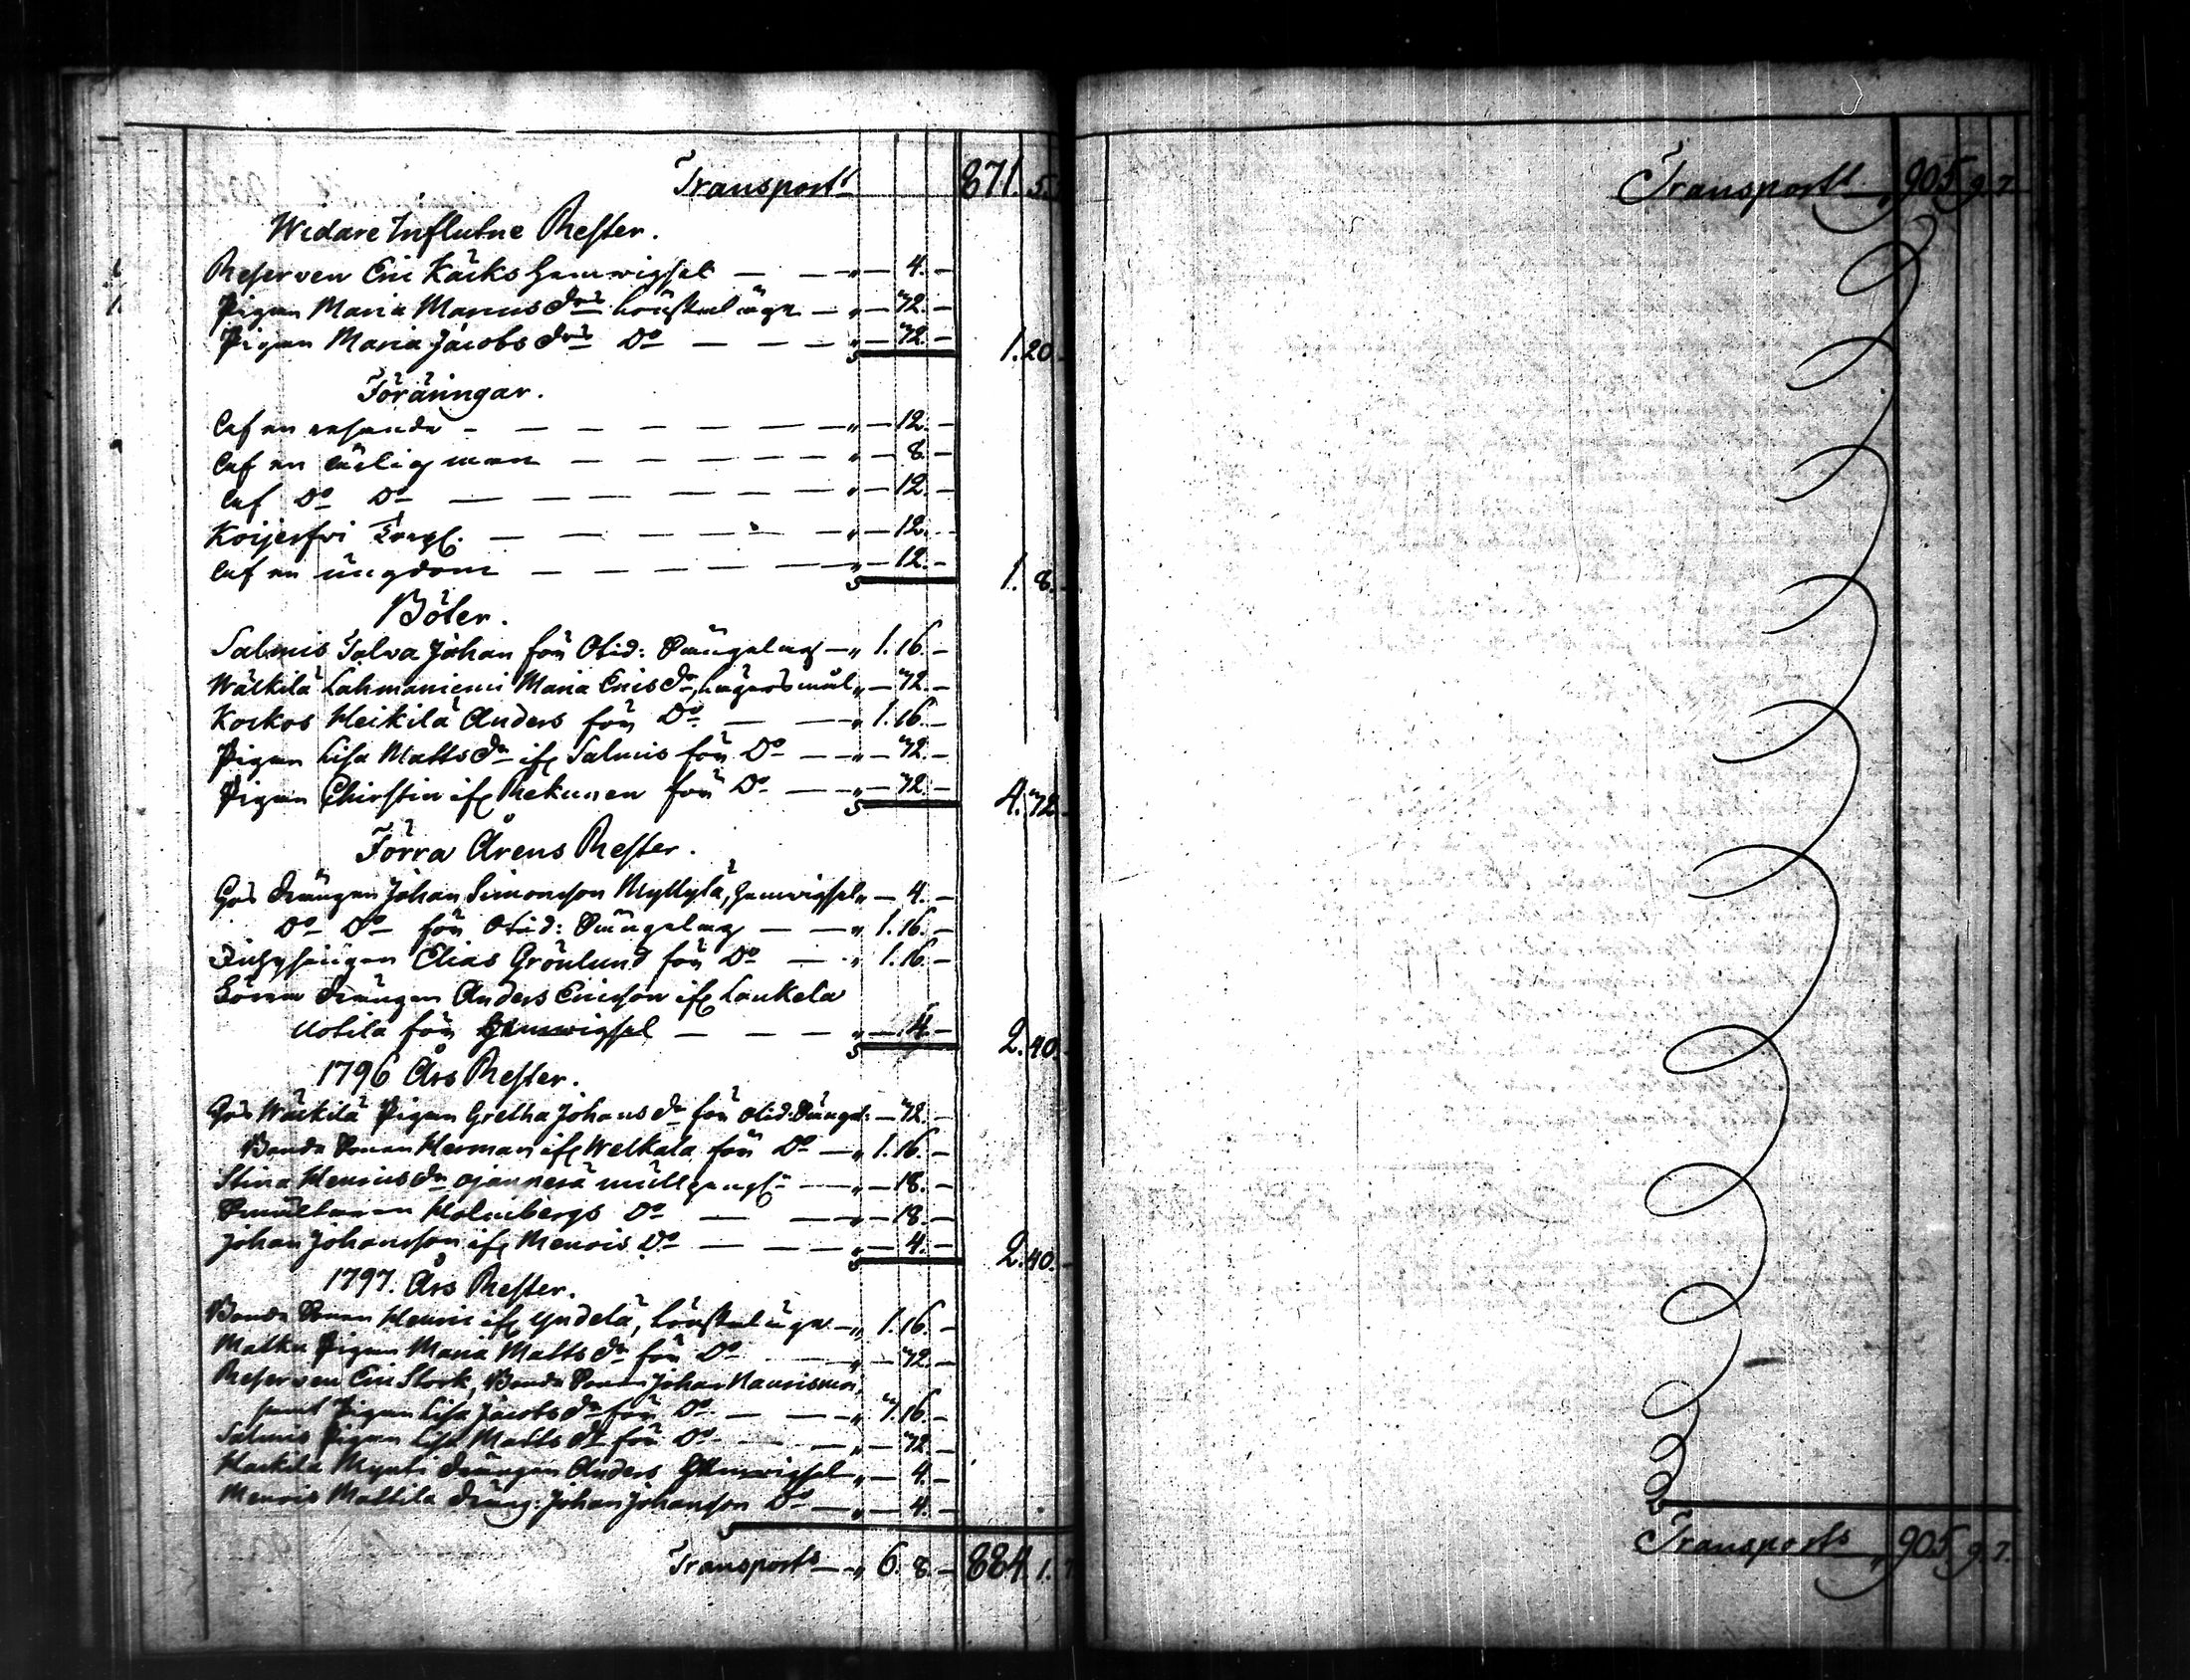 Transport 871. 5.
Widare Influtne Rester.
Reserven Eric Käcks hemwigsel — — „ — 4. —
Pigan Maria Marcusdr — „ — 32. —
Pigan Maria Jacobsdr Do — — — „ — 32. — 1. 20.
Föräringar.
Af en resande — — — — — „ — 12. —
Af en ärlig man — — — — — „ — 8. —
Af Do Do — — — — — „ — 12. —
Koijerfwi — — — — „ — 12. —
Af en ungdom — — — — — „ — 12. — 1. 8.
Böter.
Salmis Talwa Johan för Otid: Sängelag — „ 1. 16. —
Wälkilä Lahmaniemi Maria Ericsdr, Lägersmål „ — 32. —
Korkos Heikilä Anders för Do — — „ 1. 16. —
Pigan Lisa Mattsdr ifr Salmis för Do — „ — 32. —
Pigan Chirstin ifr Rekunen för Do — „ — 32. — 4. 32.
Förra Årens Rester.
Gos drängen Johan Simonsson Myllylä, hemwigsel „ — 4. —
Do Do för Otid: Sängelag — — „ 1. 16. —
Elias Grönlund för Do — „ 1. 16. —
drängen Anders Ericsson ifr Laukela
Uotila för hemwigsel — — — „ — 4. — 2. 40.
1796 Års Rester.
Gos Wälkilä Pigan Gretha Johansdr för otid: Sängel: — 32. —
Bonde Sonen Herman ifr Welkala för Do — „ 1. 16. —
Stina Henricsdr — „ — 18. —
Holmbergs Do — — „ — 18. —
Johan Johansson ifr Menois Do — — — „ — 4. — 2. 40. —
1797. Års Rester.
Bonde Sonen Henric ifr Yndelä, — „ 1. 16. —
Matku Pigan Maria Mattsdr för Do — „ — 32. —
Reserven Eric Stork, Bonde Sonen Johan
samt Pigan Lisa Jacobsdr för Do — — „ 3. 16. —
Salmis Pigan Lisa Mattsdr för Do — — „ — 32. —
drängen Anders hemwigsel „ — 4. —
Menois Mattila dräng: Johan Johansson Do — „ — 4. —
Transport — „ 6. 8. — 884. 1. 7
Transport „ 905. 9. 7.
Transport „ 905. 9. 7.